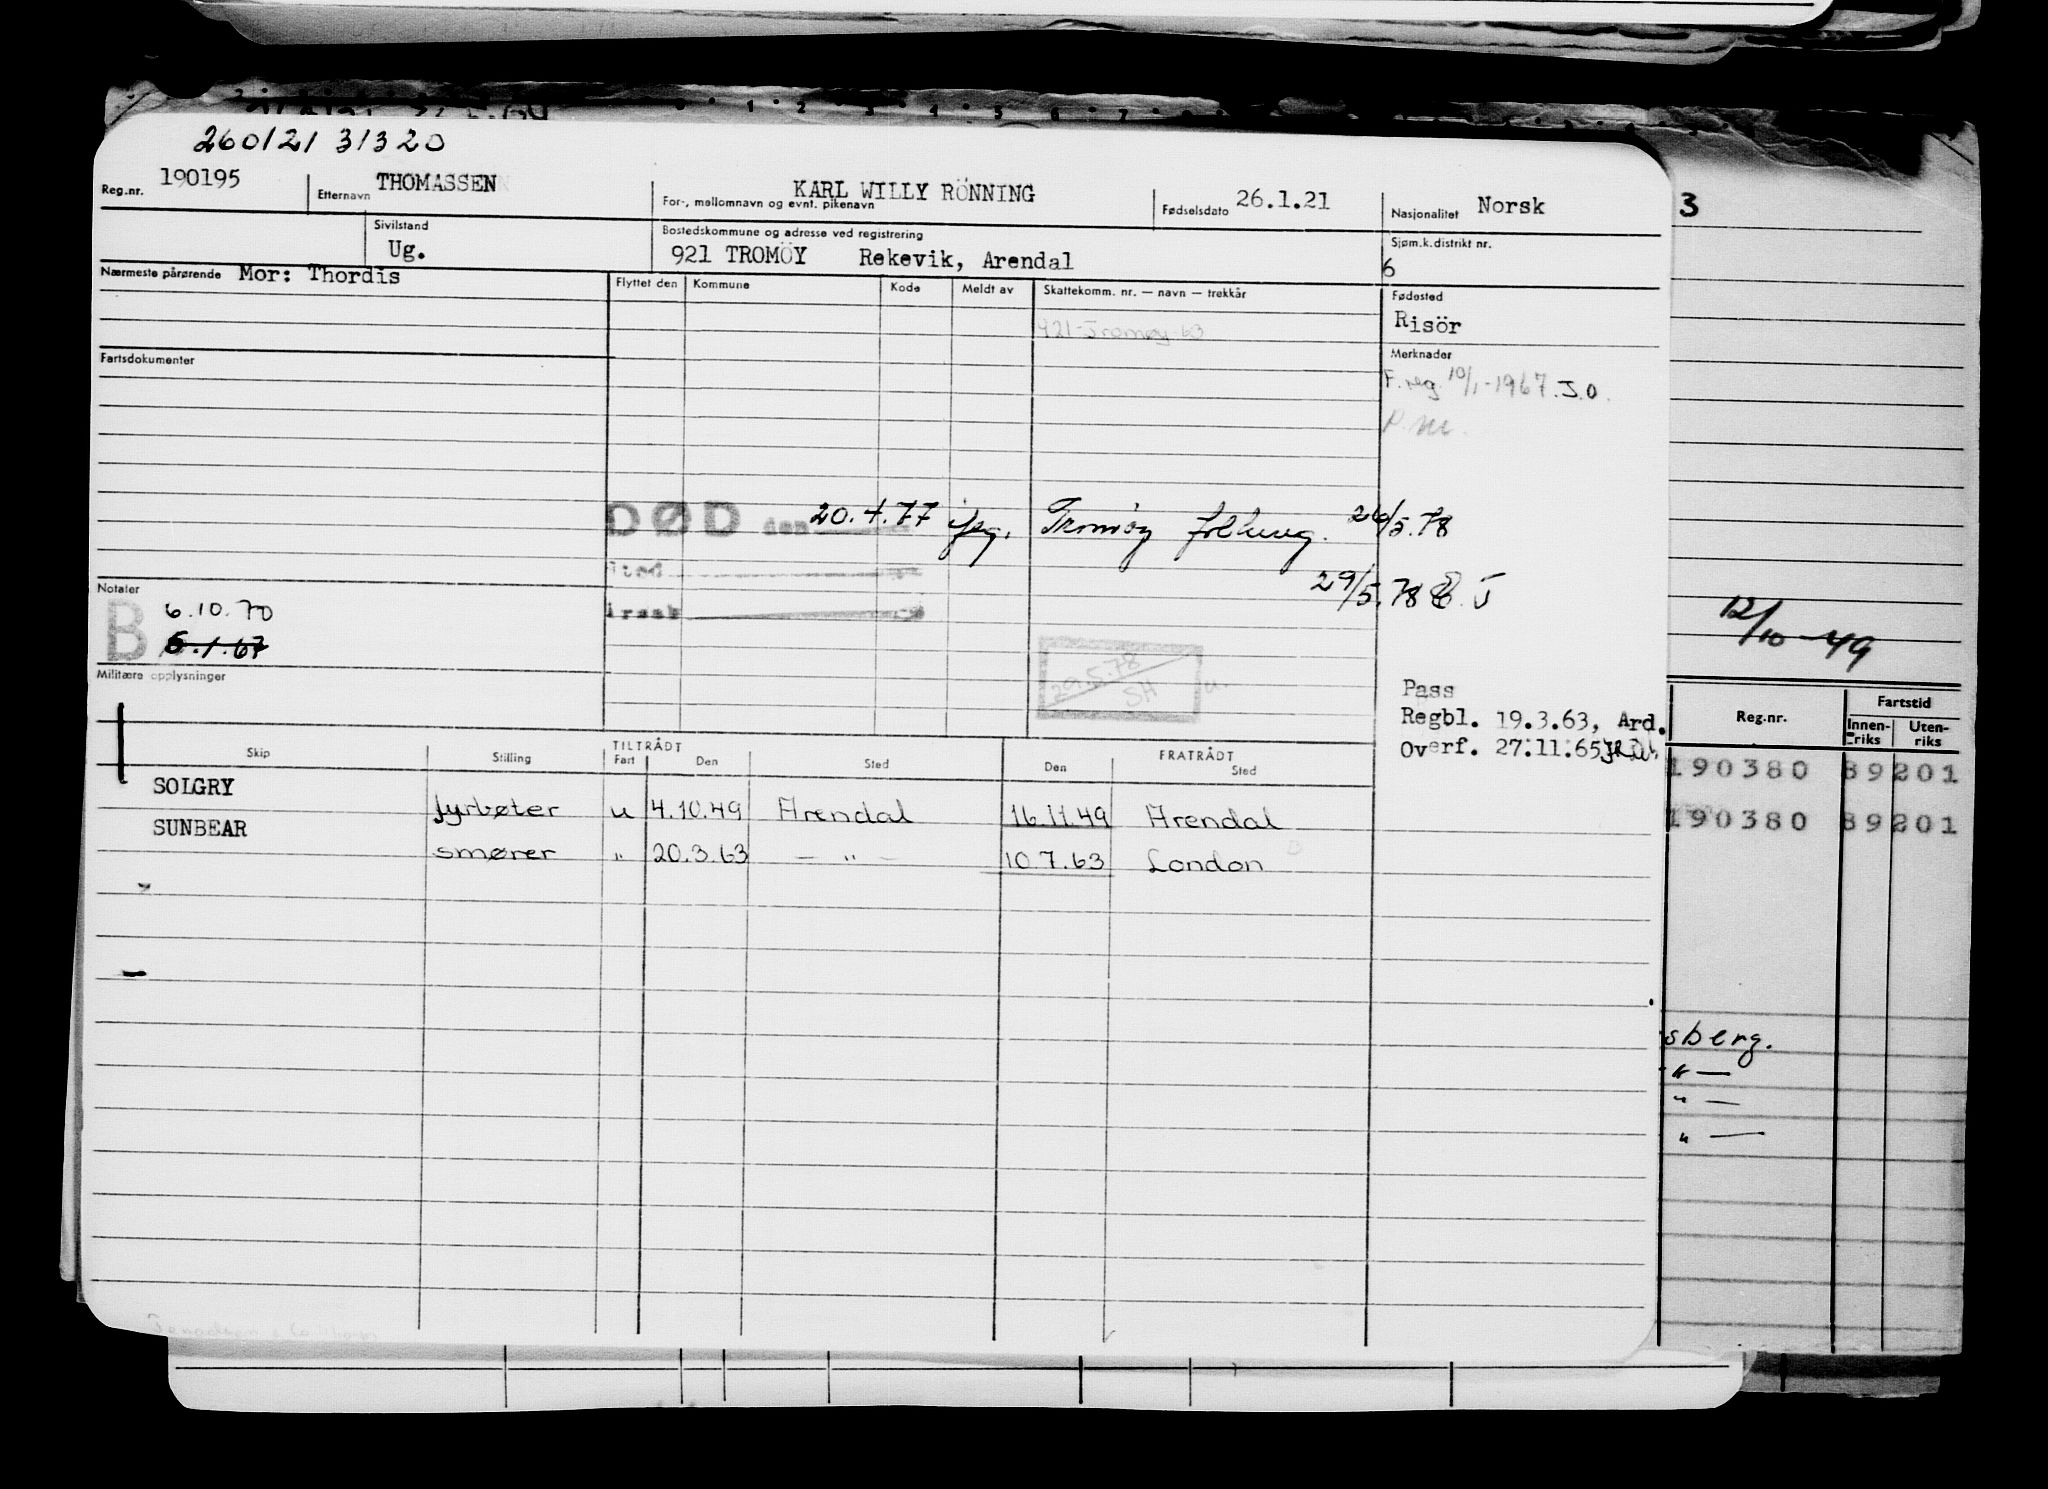 260121 31320
Reg.nr. 190195 Etternavn THOMASSEN For-, mellomnavn og evnt. pikenavn KARL WILLY RÖNNING Fødselsdato 26.1.21 Nasjonalitet Norsk
3
Sivilstand Ug. Bostedskommune og adresse ved registrering 921 TROMÖY Rekevik, Arendal Sjøm.k.distrikt nr. 6
Nærmeste pårørende Mor: Thordis Flyttet den Kommune Kode Meldt av Skattekomm. nr. — navn — trekkår Fødested
921-Tromøy 63 Risör
Fartsdokumenter Merknader
F. reg. 10/1-1967. J.O.
P.M.
DØD den 20.4.77 Tromöy 26/5.78
Notater
29/5.78
B 6.10.70
6.1.67
29.5.78
SH
12/10-49
Militære opplysninger
Pass
Regbl. 19.3.63, Ard.
Overf. 27.11.65
Reg.nr. Fartstid
Innen-riks Uten-riks
Skip Stilling TILTRÅDT Fart Den Sted FRATRÅDT Den Sted
190380 89201
SOLGRY fyrbøter u 4.10.49 Arendal 16.11.49 Arendal
190380 89201
SUNBEAR smører " 20.3.63 — " — 10.7.63 London
sberg.
" —
" —
" —